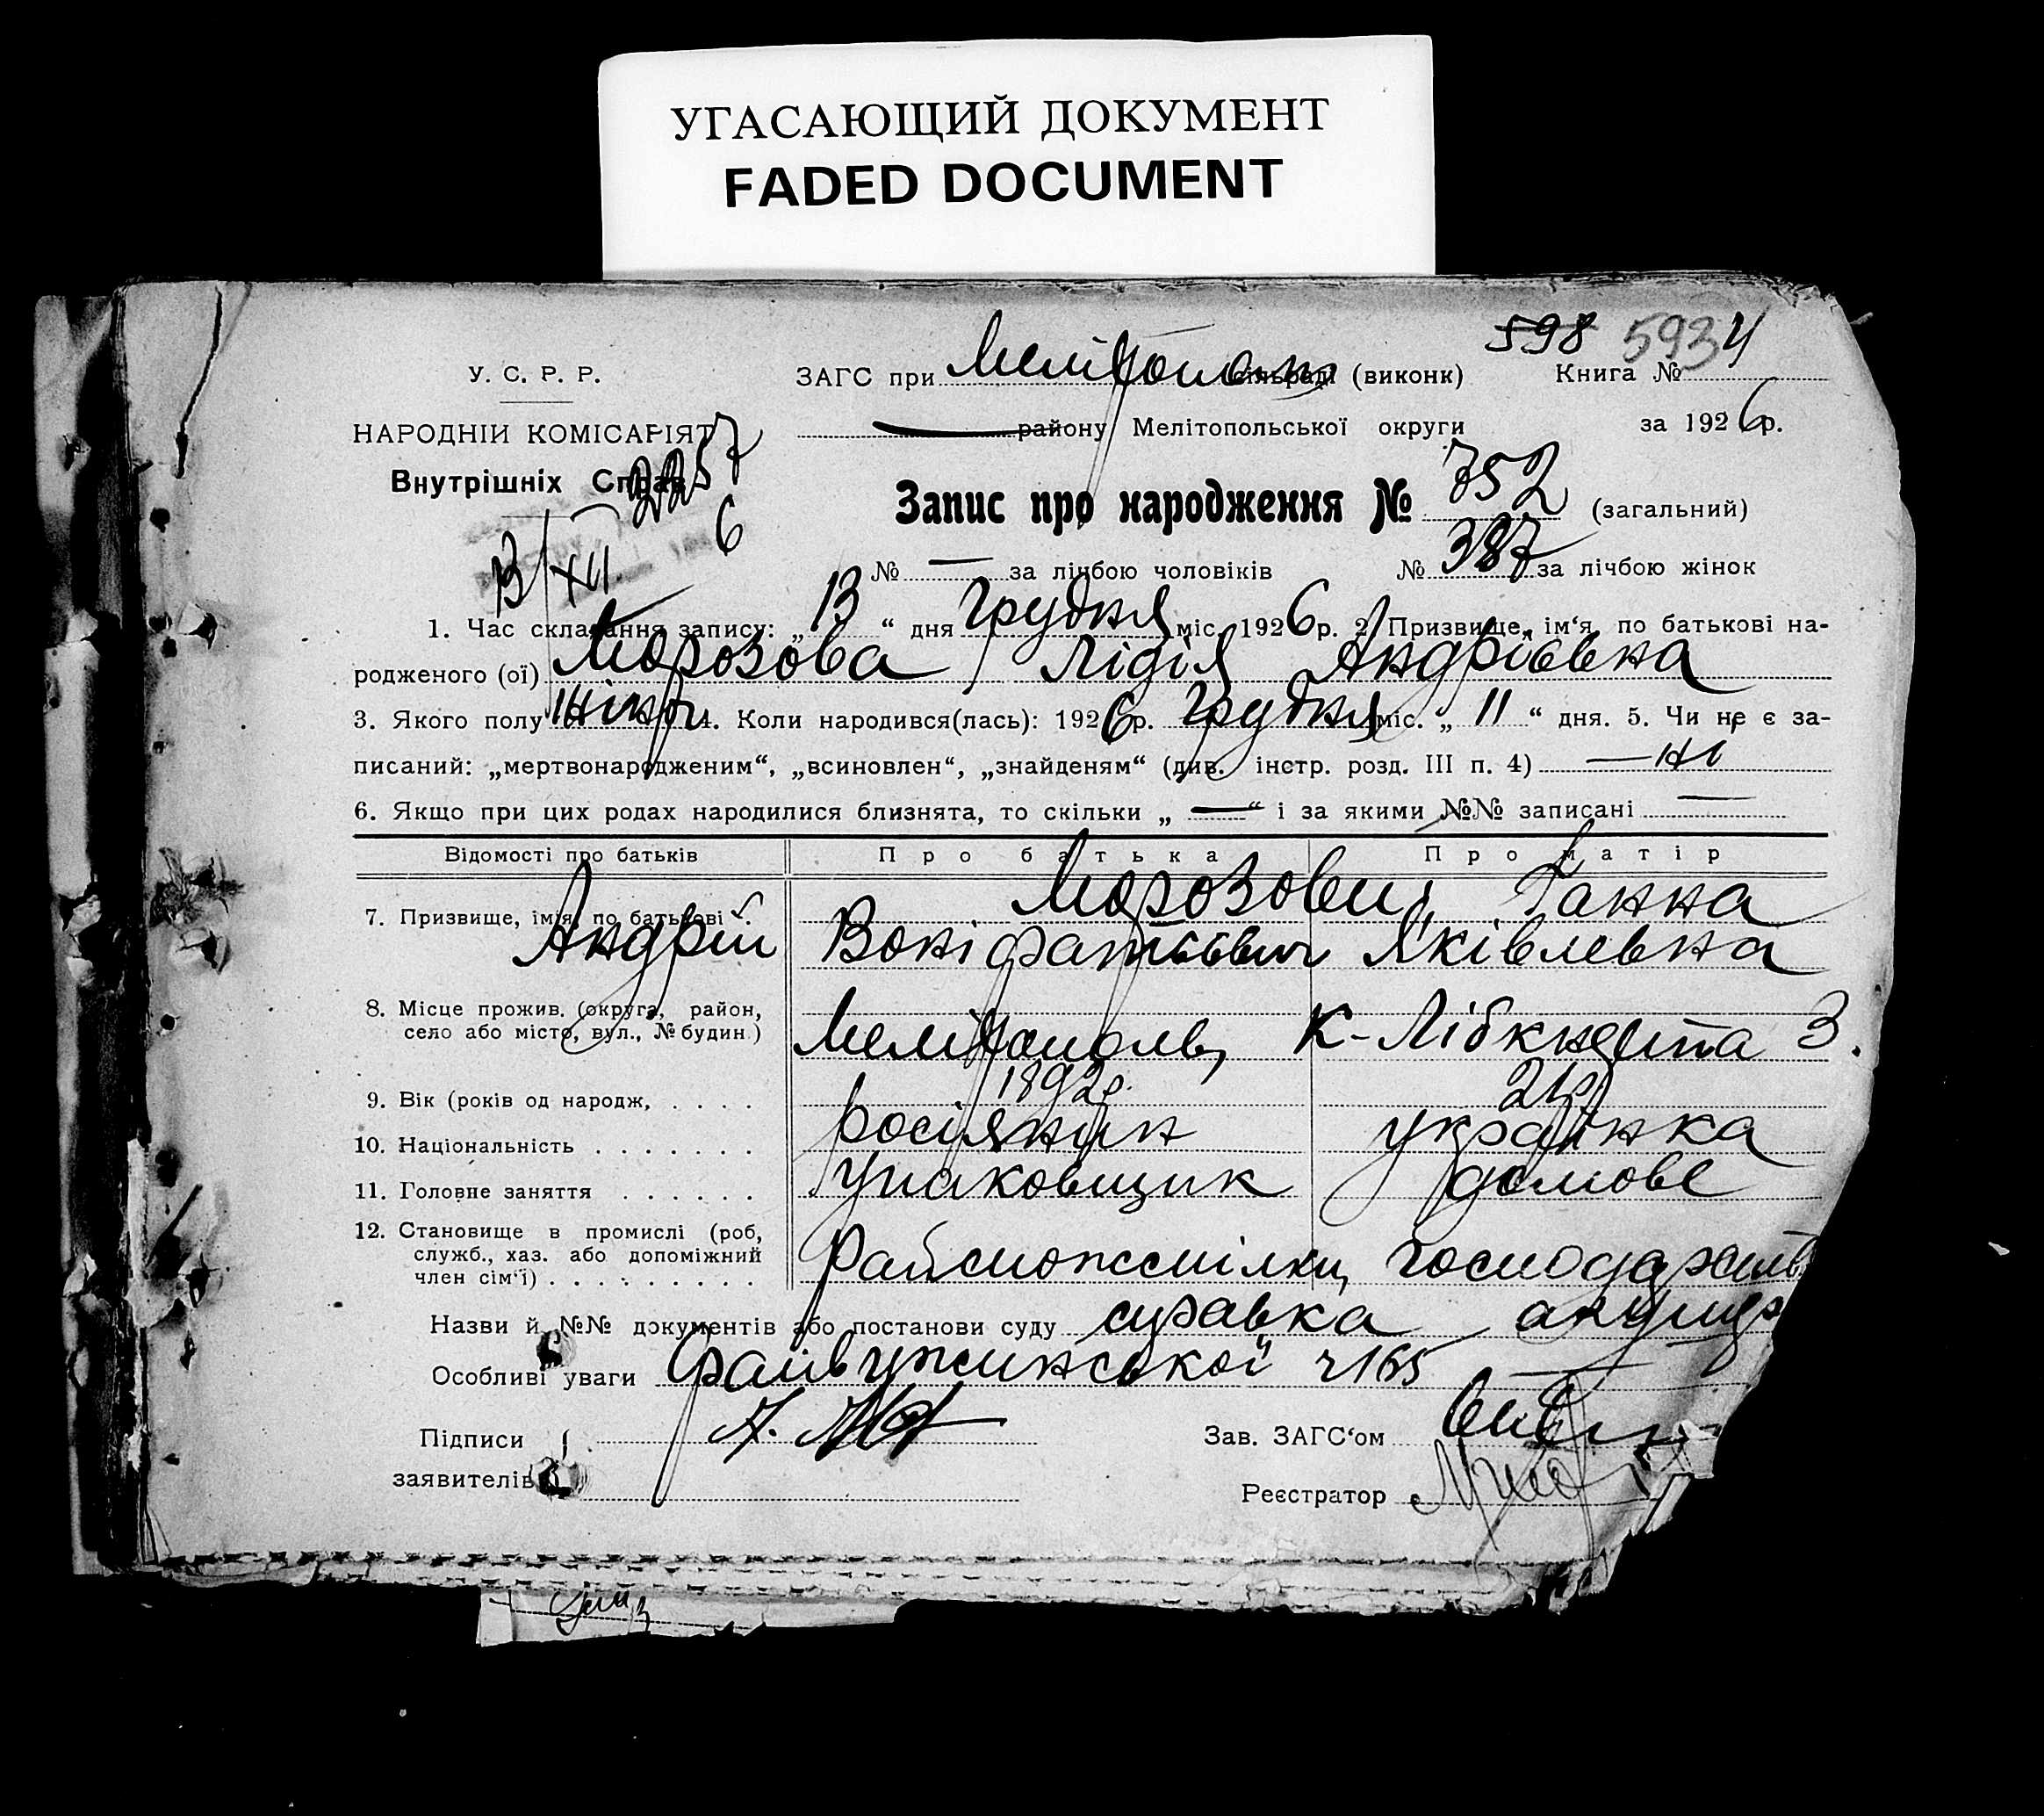 УГАСАЮЩИЙ ДОКУМЕНТ
FADED DOCUMENT
598 5934
У. С. Р. Р. ЗАГС при Мелітополь сільраді (виконк) Книга №
НАРОДНІЙ КОМІСАРІЯТ району Мелітопольської округи за 1926р.
Внутрішніх Справ
2257
6
Запис про народження № 752 (загальний)
13/XII
№ — за лічбою чоловіків № 387 за лічбою жінок
1. Час складання запису: „13“ дня Грудня міс. 1926р. 2. Призвище, ім‘я, по батькові на-
родженого (ої) Морозова Лідія Андріївна
3. Якого полу жінки 4. Коли народився(лась): 1926р. Грудня міс. „11“ дня. 5. Чи не є за-
писаний: „мертвонародженим“, „всиновлен“, „знайденям“ (див. інстр. розд. III п. 4) — ні
6. Якщо при цих родах народилися близнята, то скільки „—“ і за якими №№ записані —
Відомості про батьків Про батька Про матір
Морозови, Ганна
7. Призвище, імія, по батькові
Андрій Воніфатьєвич Яківлевна
8. Місце прожив. (округа, район,
село або місто, вул., № будин.) Мелітополь, К-Лібкнехта 3.
9. Вік (років од народж, . . . . 1892р. 24р
10. Національність . . . . . . . росіянин українка
11. Головне заняття . . . . . . упаковщик домове
12. Становище в промислі (роб,
служб., хаз. або допоміжний
член сім‘ї) . . . . . . . . . Райспоживспілки, господарств
Назви й №№ документів або постанови суду справка акушер
Особливі уваги ч165
Підписи Зав. ЗАГС‘ом
заявителів
Реєстратор